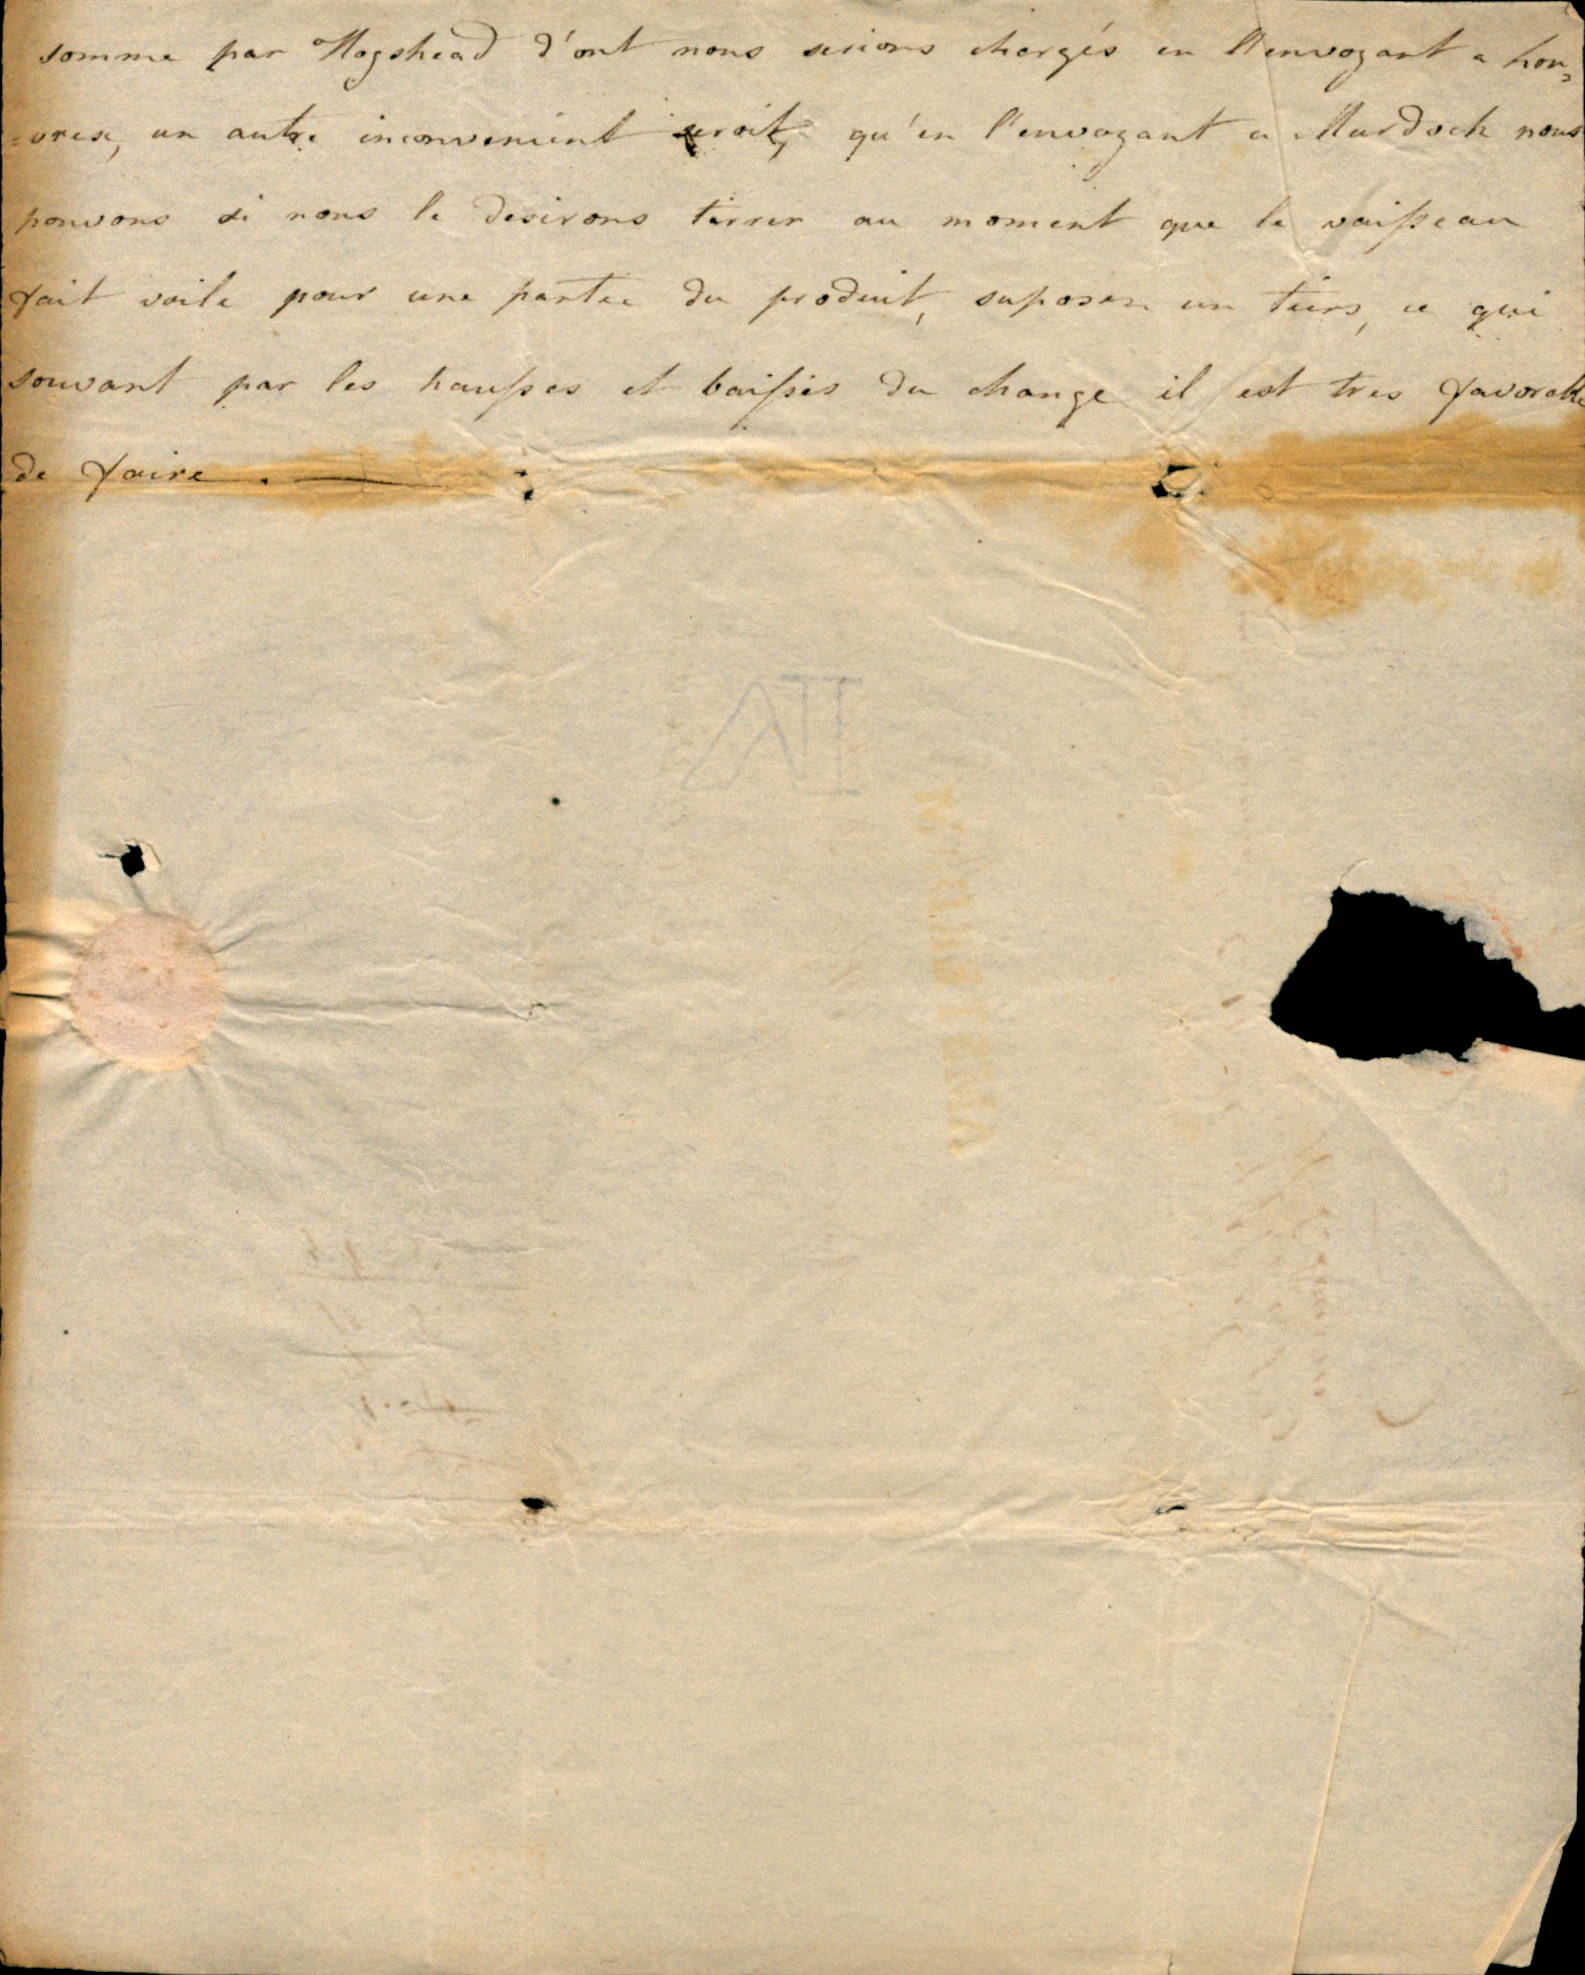 somme par Hogshead d'ont nous serions chargés en l'envoyant a hon=
=orex, un autre inconvenient seroit, qu'en l'envoyant a Murdoch nous
pouvons si nous le desirons tirrer au moment que le vaisseau
fait voile pour une partee du produit, suposex un tiers, ce qui
souvant par les hausses et baisses du change il est tres favorable
de faire.